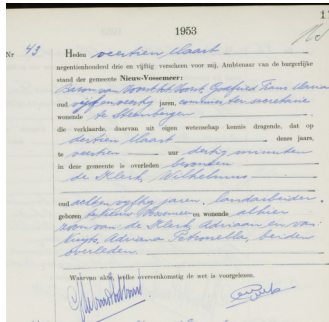 1953
Nr 43 Heden veertien Maart
negentienhonderd drie en vijftig verscheen voor mij, Ambtenaar van de burgerlijke
stand der gemeente Nieuw-Vossemeer:
Baron van Voorst tot Voorst, Godfried Frans Maria
oud vijf en veertig jaren, commies ter secretarie
wonende te Steenbergen
die verklaarde, daarvan uit eigen wetenschap kennis dragende, dat op
dertien Maart dezes jaars,
te veertien uur dertig minuten
in deze gemeente is overleden bevonden
de Klerk, Wilhelmus
oud acht en vijftig jaren, landarbeider
geboren te Nieuw-Vossemeer en wonende alhier
zoon van: de Klerk, Adriaan en van:
Adriana Petronella, beiden
overleden.
Waarvan akte, welke overeenkomstig de wet is voorgelezen.